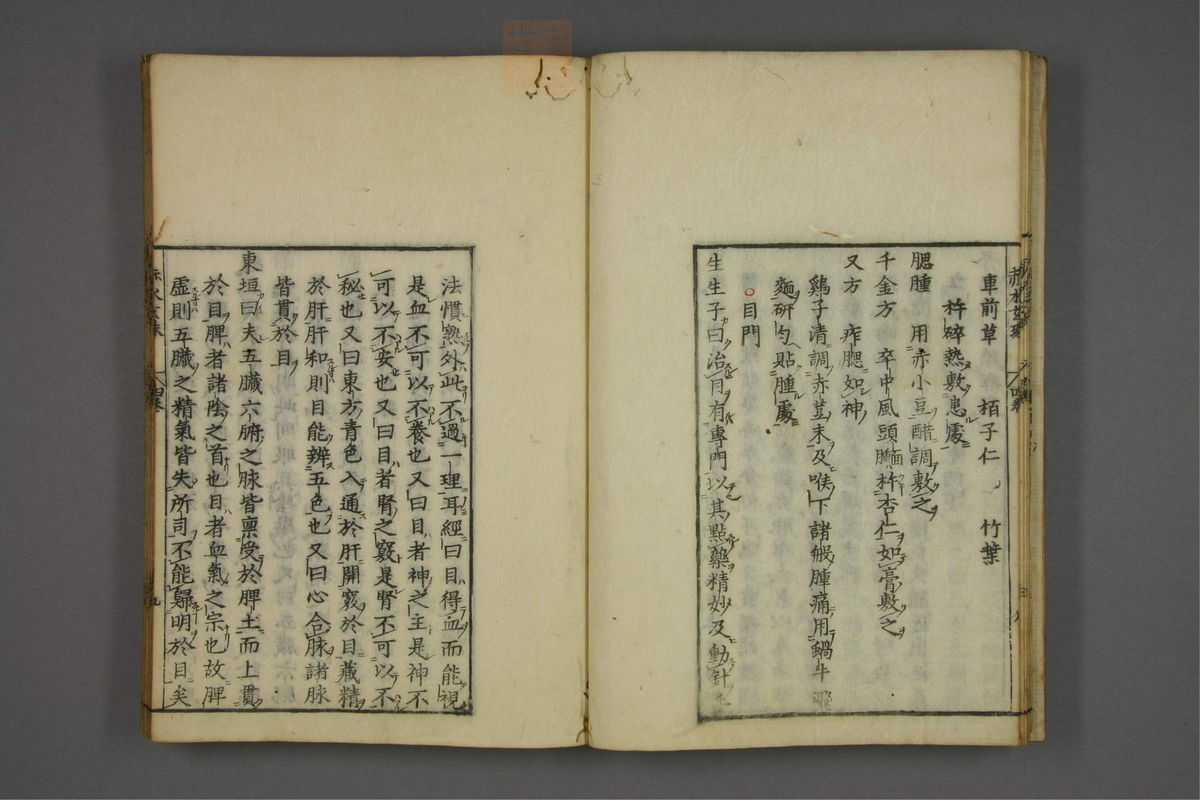 車前草 栢子仁 竹葉
杵碎熱敷患處
腮腫 用赤小豆醋調敷之
千金方 卒中風頭面腫杵杏仁如膏敷之
又方 痄腮如神
鷄子清調赤荳末及喉下諸般腫痛用蝸牛飛
麵研勻貼腫處
目門
生生子曰治目有專門以其點藥精妙及動針手
法慣熟外此不過一理耳經曰目得血而能視
是血不可以不養也又曰目者神之主是神不
可以不安也又曰目者腎之竅是腎不可以不
秘也又曰東方青色入通於肝開竅於目藏精
於肝肝和則目能辨五色也又曰心合脉諸脉
皆貫於目
東垣曰夫五臟六腑之脉皆禀受於脾土而上貫
於目脾者諸陰之首也目者血氣之宗也故脾
虛則五臟之精氣皆失所司不能歸明於目矣